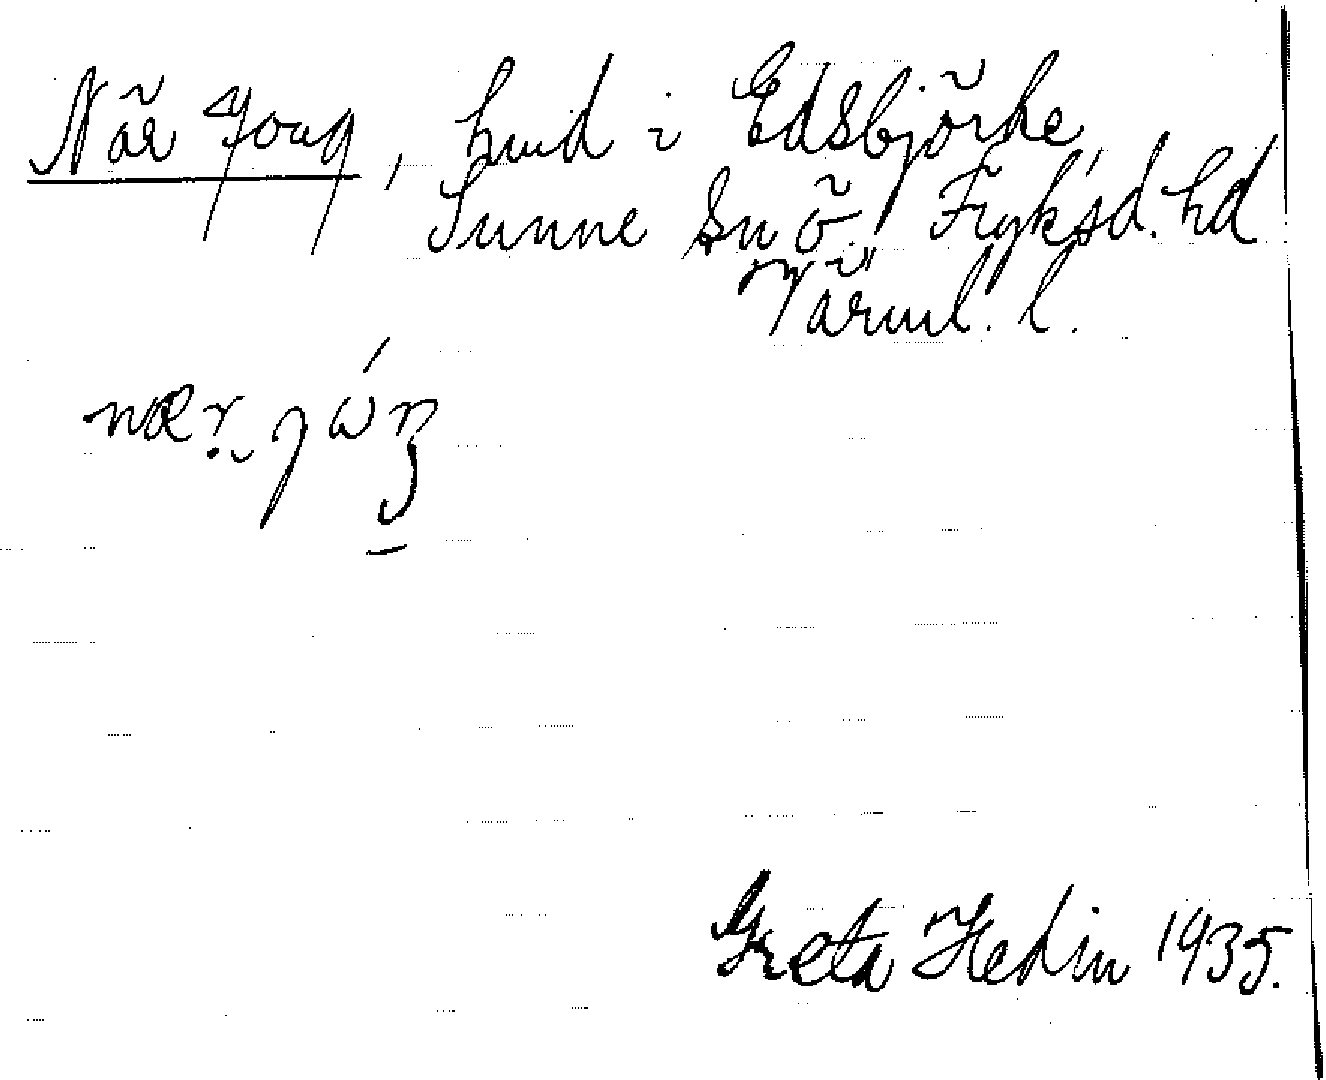 När Joug, hmd i Edsbjörke
Sunne sn ö. Fryksd. hd
Värml. l.
Greta Hedin 1935.